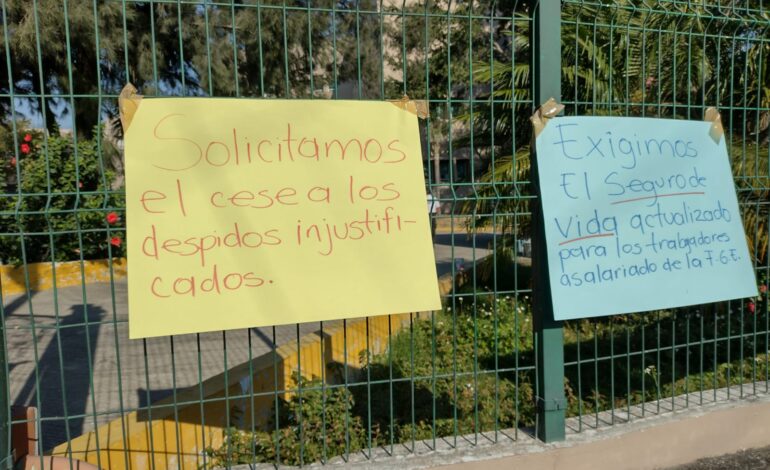 Solicitamos
el cese a los
despidos injustifi-
cados.
Exigimos
El Seguro de
vida actualizado
para los trabajadores
asalariado de la F.G.E.